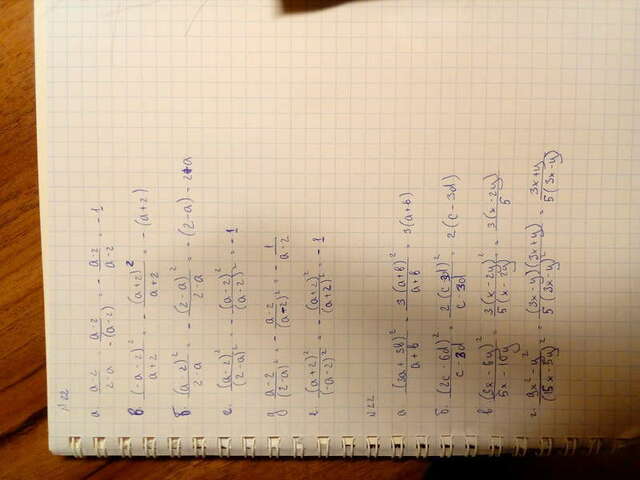 № 22
а. (a-2)/(2-a) = (a-2)/(-(a-2)) = - (a-2)/(a-2) = -1
в. (-a-2)²/(a+2) = - (a+2)²/(a+2) = -(a+2)
б (a-2)²/(2-a) = - (2-a)²/(2-a) = -(2-a) - 2+a
г. (a-2)²/(2-a)² = - (a-2)²/(a-2)² = -1
д (a-2)/(2-a)² = - (a-2)/(a-2)² = - 1/(a-2)
г. (a+2)²/(-a-2)² = - (a+2)²/(a+2)² = -1
№22
а (3a+3b)²/(a+b) = 3(a+b)²/(a+b) = 3(a+b)
б. (2c-6d)²/(c-3d) = 2(c-3d)²/(c-3d) = 2(c-3d)
в (3x-6y)²/(5x-10y) = 3(x-2y)²/5(x-2y) = 3(x-2y)/5
г. (9x²-y²)/(15x-5y)² = (3x-y)(3x+y)/5(3x-y)² = (3x+y)/5(3x-y)